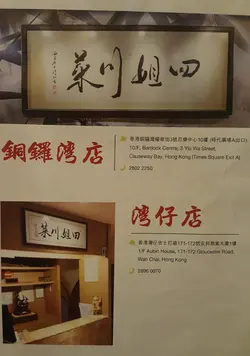 四姐川菜
銅鑼灣店
香港銅鑼灣耀華街3號百樂中心10樓 (時代廣場A出口)
10/F, Bartlock Centre, 3 Yiu Wa Street,
Causeway Bay, Hong Kong (Times Square Exit A)
2802 2250
灣仔店
四姐川菜
香港灣仔告士打道171-172號安邦商業大廈1樓
1/F Aubin House, 171-172 Gloucester Road,
Wan Chai, Hong Kong